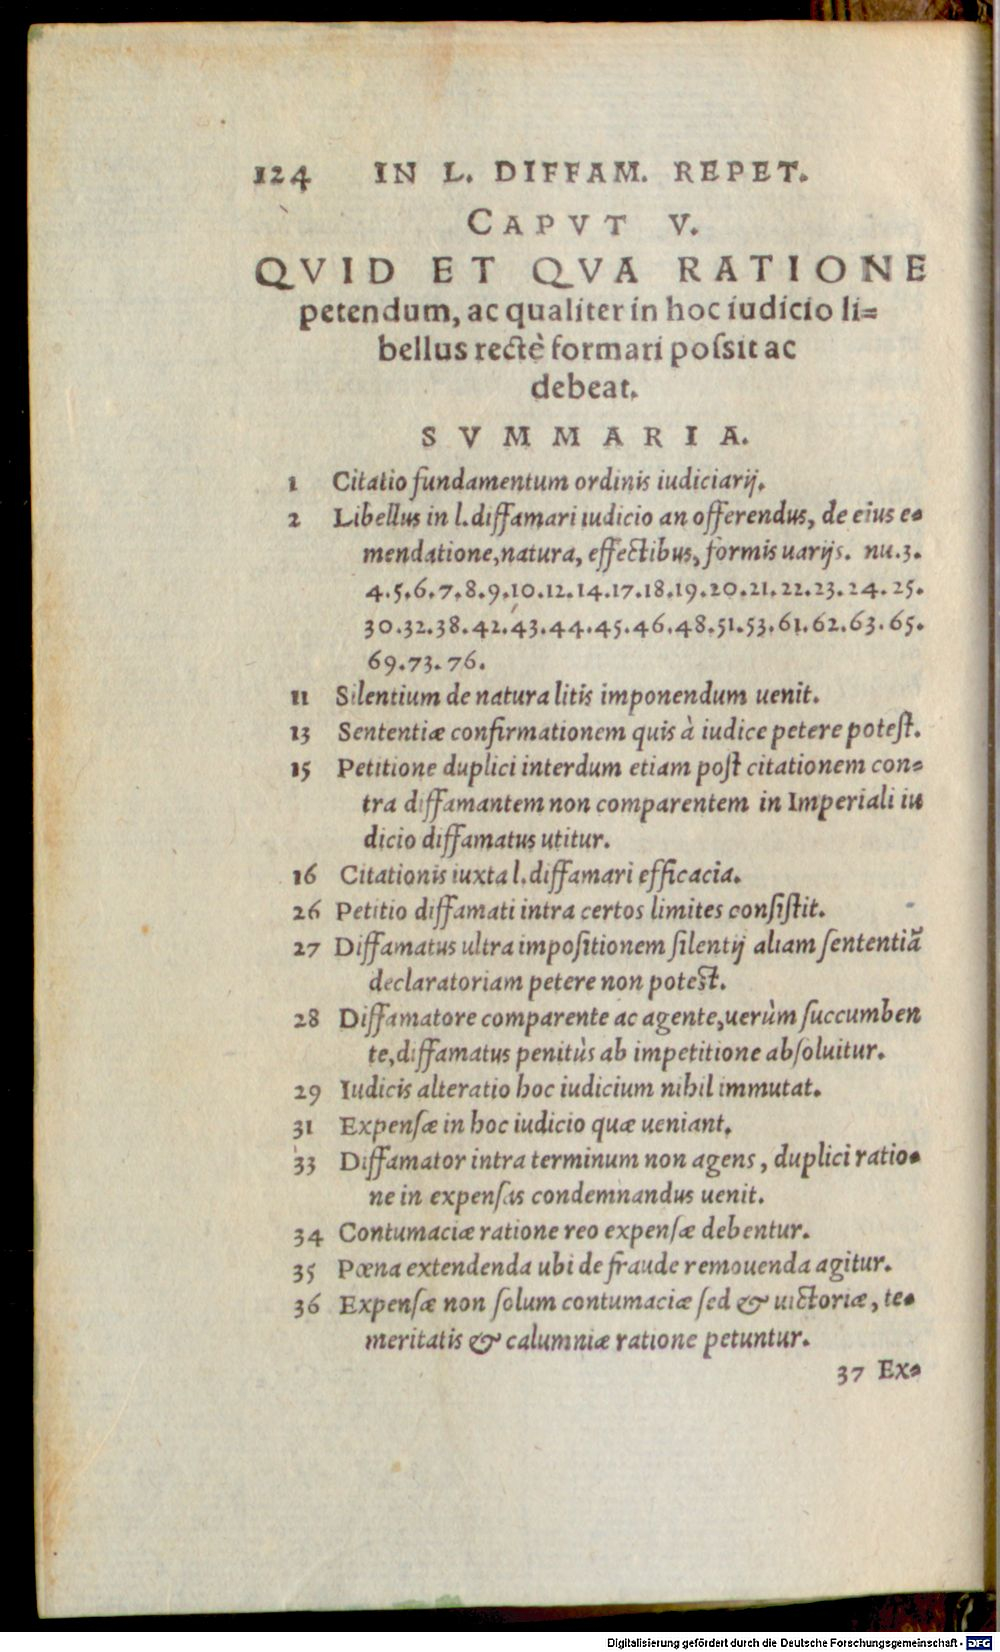 124 IN L. DIFFAM. REPET.
CAPVT V.
QVID ET QVA RATIONE
petendum, ac qualiter in hoc iudicio li=
bellus rectè formari poſsit ac
debeat.
SVMMARIA.
1 Citatio fundamentum ordinis iudiciarij.
2 Libellus in l. diffamari iudicio an offerendus, de eius e-
mendatione, natura, effectibus, formis uarijs. nu.3.
4.5.6.7.8.9.10.12.14.17.18.19.20.21.22.23.24.25.
30.32.38.42.43.44.45.46.48.51.53.61.62.63.65.
69.73.76.
11 Silentium de natura litis imponendum uenit.
13 Sententiæ confirmationem quis à iudice petere poteſt.
15 Petitione duplici interdum etiam poſt citationem con=
tra diffamantem non comparentem in Imperiali iu
dicio diffamatus utitur.
16 Citationis iuxta l. diffamari efficacia.
26 Petitio diffamati intra certos limites conſiſtit.
27 Diffamatus ultra impoſitionem ſilentij aliam ſententiã
declaratoriam petere non poteſt.
28 Diffamatore comparente ac agente, uerùm ſuccumben
te, diffamatus penitùs ab impetitione abſoluitur.
29 Iudicis alteratio hoc iudicium nihil immutat.
31 Expenſæ in hoc iudicio quæ ueniant.
33 Diffamator intra terminum non agens, duplici ratio-
ne in expenſas condemnandus uenit.
34 Contumaciæ ratione reo expenſæ debentur.
35 Pœna extendenda ubi de fraude remouenda agitur.
36 Expenſæ non ſolum contumaciæ ſed & uictoriæ, te-
meritatis & calumniæ ratione petuntur.
37 Ex=
Digitalisierung gefördert durch die Deutsche Forschungsgemeinschaft - DFG